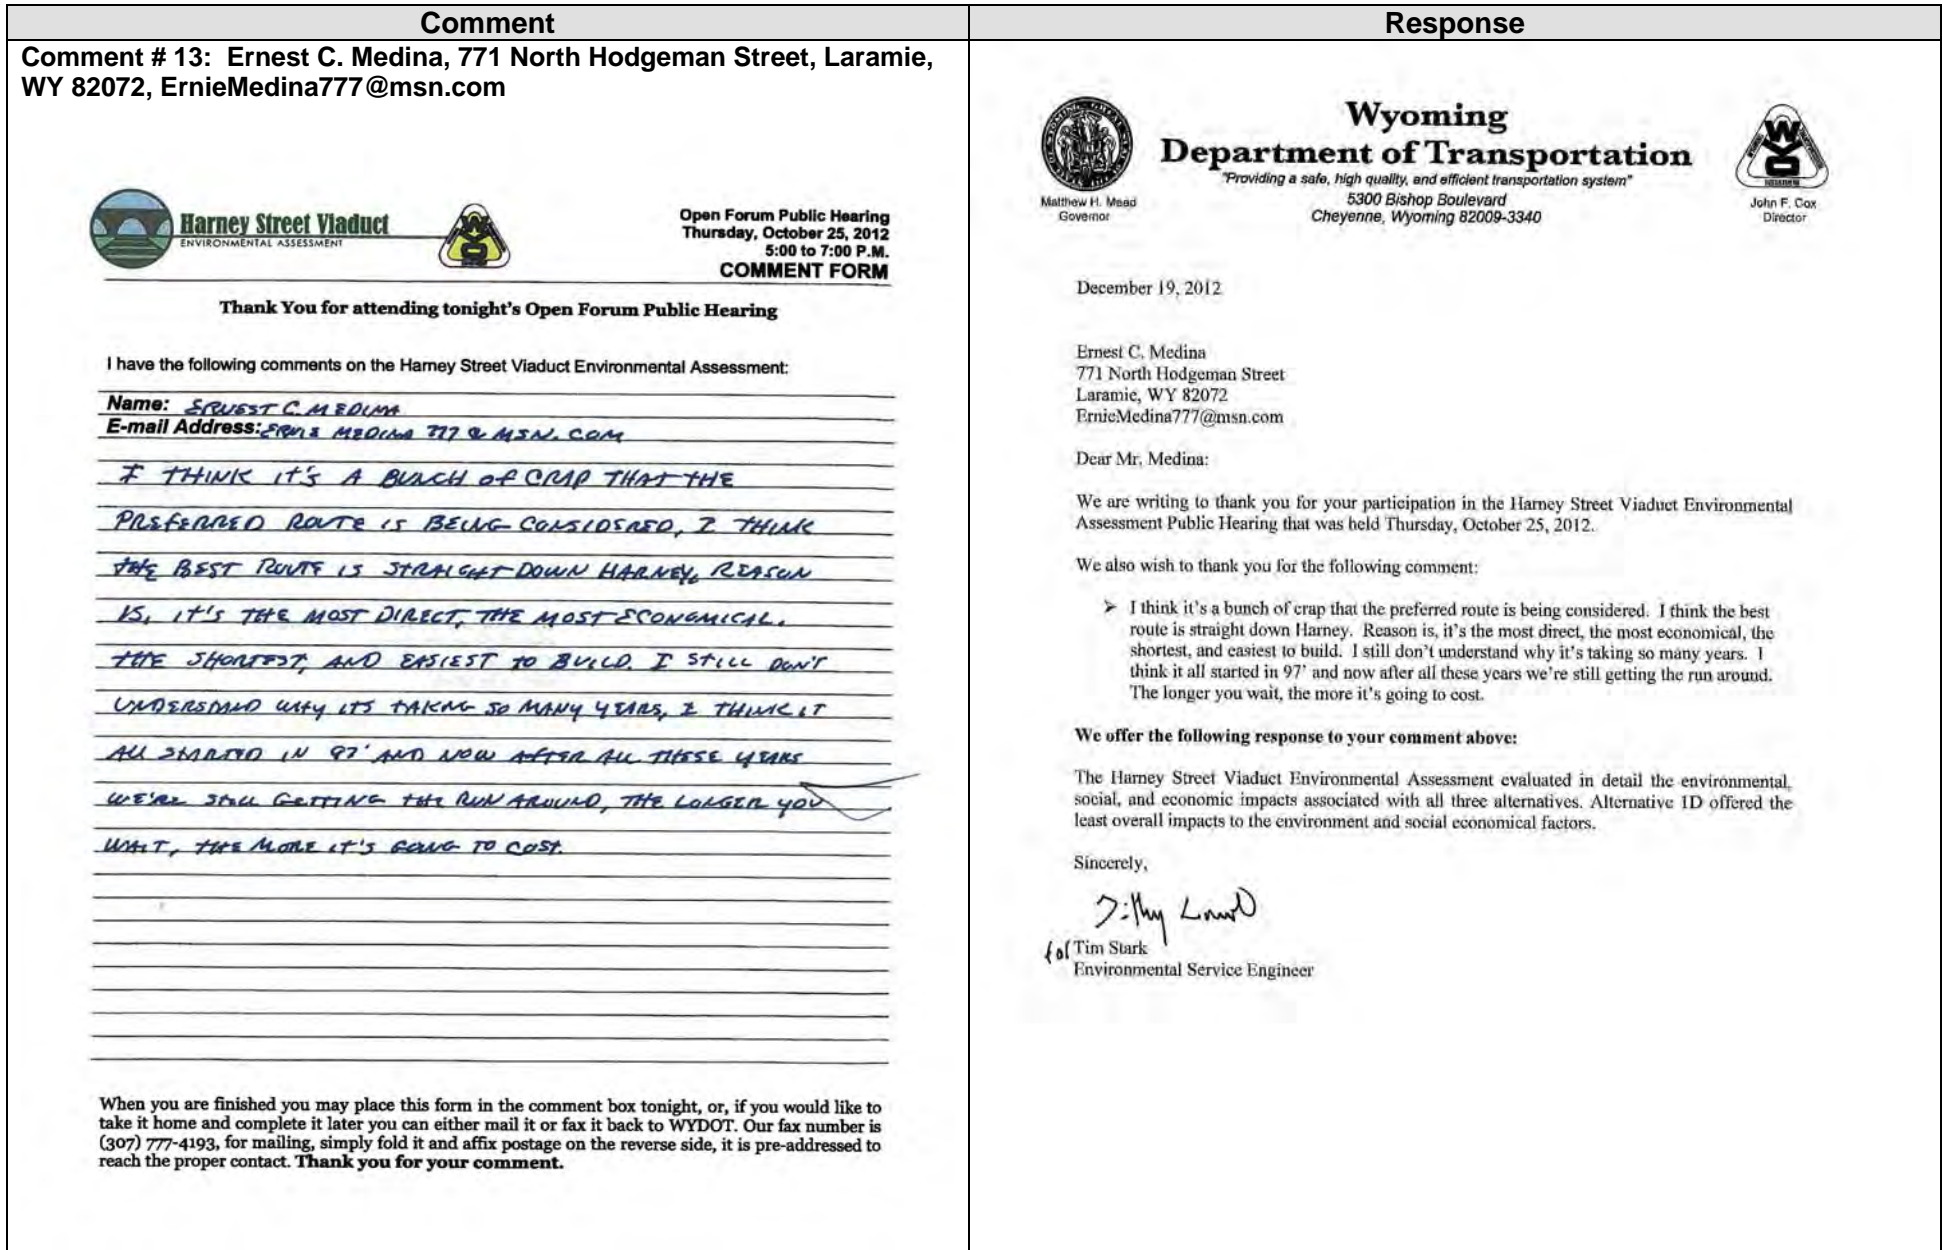 Comment
Response
Comment # 13: Ernest C. Medina, 771 North Hodgeman Street, Laramie,
WY 82072, ErnieMedina777@msn.com
Harney Street Viaduct
ENVIRONMENTAL ASSESSMENT
Open Forum Public Hearing
Thursday, October 25, 2012
5:00 to 7:00 P.M.
COMMENT FORM
Thank You for attending tonight's Open Forum Public Hearing
I have the following comments on the Harney Street Viaduct Environmental Assessment:
Name: ERNEST C. MEDINA
E-mail Address: ERNIE MEDINA 777 @ MSN.COM
I THINK IT'S A BUNCH OF CRAP THAT THE
PREFERRED ROUTE IS BEING CONSIDERED, I THINK
THE BEST ROUTE IS STRAIGHT DOWN HARNEY, REASON
IS, IT'S THE MOST DIRECT, THE MOST ECONOMICAL,
THE SHORTEST, AND EASIEST TO BUILD. I STILL DON'T
UNDERSTAND WHY ITS TAKING SO MANY YEARS, I THINK IT
ALL STARTED IN 97' AND NOW AFTER ALL THESE YEARS
WE'RE STILL GETTING THE RUN AROUND, THE LONGER YOU
WAIT, THE MORE IT'S GOING TO COST.
When you are finished you may place this form in the comment box tonight, or, if you would like to
take it home and complete it later you can either mail it or fax it back to WYDOT. Our fax number is
(307) 777-4193, for mailing, simply fold it and affix postage on the reverse side, it is pre-addressed to
reach the proper contact. Thank you for your comment.
Wyoming
Department of Transportation
"Providing a safe, high quality, and efficient transportation system"
5300 Bishop Boulevard
Cheyenne, Wyoming 82009-3340
Matthew H. Mead
Governor
John F. Cox
Director
December 19, 2012
Ernest C. Medina
771 North Hodgeman Street
Laramie, WY 82072
ErnieMedina777@msn.com
Dear Mr. Medina:
We are writing to thank you for your participation in the Harney Street Viaduct Environmental
Assessment Public Hearing that was held Thursday, October 25, 2012.
We also wish to thank you for the following comment:
➢ I think it's a bunch of crap that the preferred route is being considered. I think the best
route is straight down Harney. Reason is, it's the most direct, the most economical, the
shortest, and easiest to build. I still don't understand why it's taking so many years. I
think it all started in 97' and now after all these years we're still getting the run around.
The longer you wait, the more it's going to cost.
We offer the following response to your comment above:
The Harney Street Viaduct Environmental Assessment evaluated in detail the environmental,
social, and economic impacts associated with all three alternatives. Alternative 1D offered the
least overall impacts to the environment and social economical factors.
Sincerely,
for Tim Stark
Environmental Service Engineer